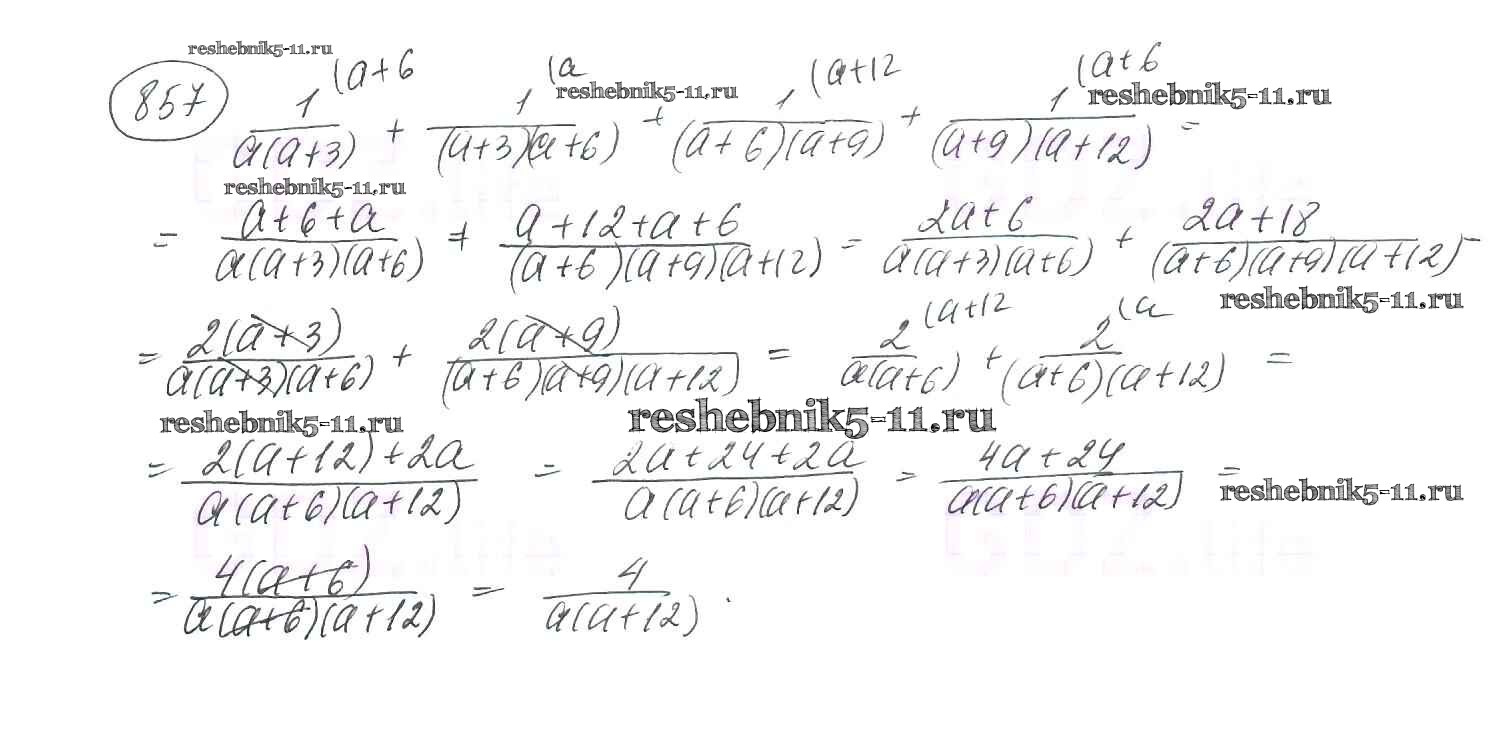 reshebnik5-11.ru
857 1(a+6 / a(a+3) + 1(a / (a+3)(a+6) + 1(a+12 / (a+6)(a+9) + 1(a+6 / (a+9)(a+12) =
reshebnik5-11.ru
reshebnik5-11.ru
reshebnik5-11.ru
= a+6+a / a(a+3)(a+6) + a+12+a+6 / (a+6)(a+9)(a+12) = 2a+6 / a(a+3)(a+6) + 2a+18 / (a+6)(a+9)(a+12) =
reshebnik5-11.ru
= 2(a+3) / a(a+3)(a+6) + 2(a+9) / (a+6)(a+9)(a+12) = 2(a+12 / a(a+6) + 2(a / (a+6)(a+12) =
reshebnik5-11.ru
reshebnik5-11.ru
= 2(a+12)+2a / a(a+6)(a+12) = 2a+24+2a / a(a+6)(a+12) = 4a+24 / a(a+6)(a+12) =
reshebnik5-11.ru
= 4(a+6) / a(a+6)(a+12) = 4 / a(a+12) .